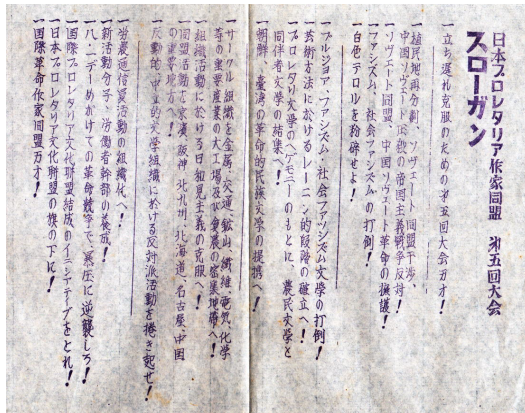 日本プロレタリア作家同盟 第五回大会
スローガン
一 立ち遅れ克服のための第五回大会万才!
一 植民地再分割、ソヴェート同盟干渉、
中国ソヴェート圧殺の帝国主義戦争反対!
一 ソヴェート同盟、中国ソヴェート革命の擁護!
一 ファシズム、社会ファシズムの打倒!
一 白色テロルを粉砕せよ!
一 ブルジョア、ファシズム・社会ファッシズム文學の打倒!
一 芸術方法に於けるレーニン的段階の確立へ!
一 プロレタリ文学のヘゲモニーのもとに、農民文学と
同伴者文学の結集へ!
一 朝鮮 臺湾の革命的民族文学の提携へ!
一 サークル組織を金属、交通、鉱山、繊維、電気、化学
等の重要産業の大工場及び貧農の密集地帯へ!
一 組織活動に於ける日和見主義の克服へ!
一 同盟活動を京濱、阪神、北九州、北海道、名古屋、中国
の重要地方へ!
一 反動的、中立的文学組織に於ける反対派活動を捲き起せ!
一 労農通信員活動の組織化へ!
一 新活動分子、労働者幹部の養成!
一 八・一デーめがけての革命競争で、弾圧に逆襲しろ!
一 国際プロレタリア文化聯盟結成のイニシアチーブをとれ!
一 日本プロレタリア文化聯盟の旗の下に!
一 国際革命作家同盟万才!